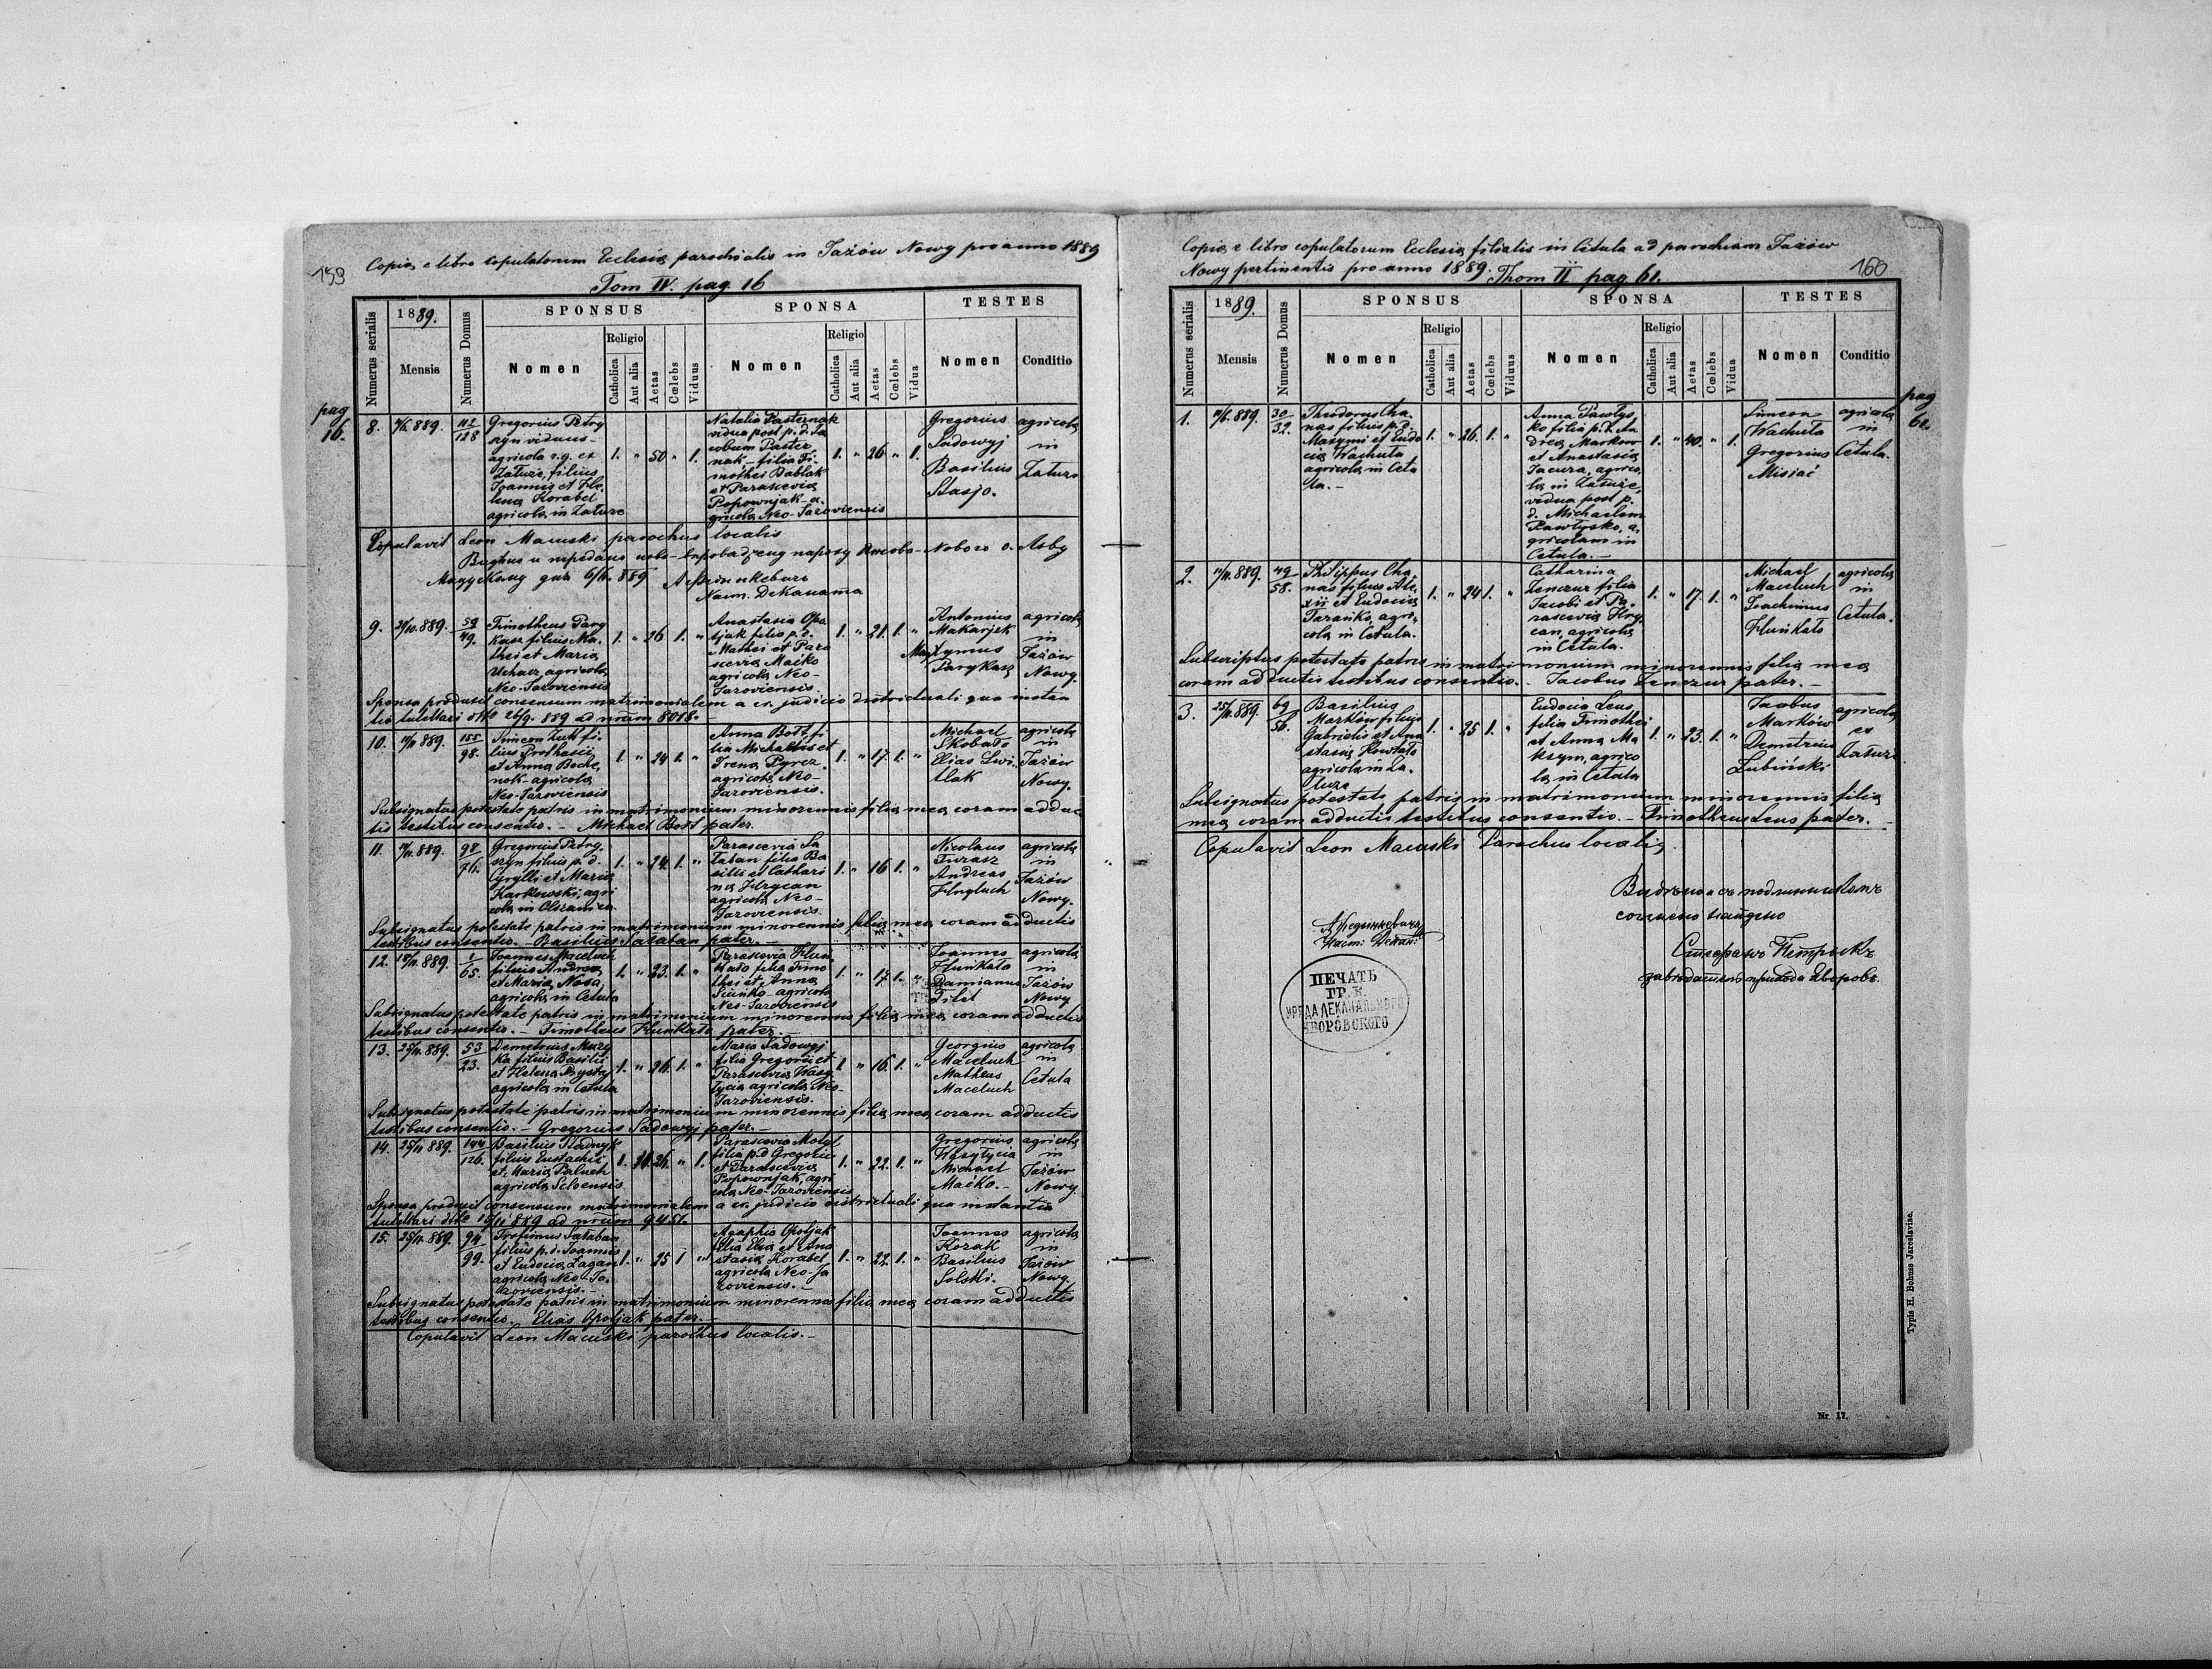 159
Copia e libro Copulatorum Ecclesiæ parochialis in Jażów Nowy pro anno 1889
Tom IV. pag 16
Numerus serialis
1889.
Mensis
Numerus Domus
SPONSUS
Nomen
Religio
Catholica
Aut alia
Aetas
Cœlebs
Viduus
SPONSA
Nomen
Religio
Catholica
Aut alia
Aetas
Cœlebs
Vidua
TESTES
Nomen
Conditio
pag
16.
8.
889.
112
128
Gregorius Petry
szyn viduus
agricola r.g. ex
Załuże, filius
Joannis et He
lena Korabel
agricola in Załuże
1. " 50 " 1.
Natalia Pasternak
vidua post p. d. Ja
cobum Paster
nak - filia Ti
mothei Bablak
et Parascevia
Popownjak - a
gricola Neo-Jazoviensis
1. " 26 " 1.
Gregorius
Sadowyj
Basilius
Stasjo.
agricola
in
Załuże
Copulavit Leon Macuski parochus localis
9.
889.
59
49.
Timotheus Pary
kasz filius Ma
thei et Maria
Uchacz, agricola
Neo-Jazoviensis
1. " 26 1. "
Anastasia Opa
ljak filia p. d.
Mathei et Para
scevia Maćko
agricola Neo-
Jazoviensis.
1. " 21. 1. "
Antonius
Makarjek
Maxymus
Parykasz
agricola
in
Jażów
Nowy.
Sponsa produxit consensum matrimonialem a cr. judicio districtuali qua instan
tia tutellari dtto 26/9. 889 ad nrum 8018.-
10.
889.
155
98.
Simeon Żuk fi-
lius Prothasii
et Anna Boche
nek - agricola
Neo-Jazoviensis
1. " 24 1. "
Anna Bott fi
lia Michaelis et
Irena Pyrcz
agricola Neo-
Jazoviensis.
1. " 17. 1. "
Michael
Skobało
Elias Swi
tlak
agricola
in
Jażów
Nowy.
Subsignatus potestate patris in matrimonium minorennis filiæ meæ coram adduc
tis testibus consentio. - Michael Bott pater.
11.
889.
98
76.
Gregorius Petry
szyn filius p. d.
Cyrylli et Maria
Karkowski, agri
cola in Olszanica.
1. " 24. 1. "
Parascevia Sa
łaban filia Ba
silii et Cathari
na Hrycan
agricola Neo-
Jazoviensis.
1. " 16 1. "
Nicolaus
Furasz
Andreas
Hrytuch
agricola
in
Jażów
Nowy.
Subsignatus potestate patris in matrimonium minorennis filiæ meæ coram adductis
testibus consentio. - Basilius Sałaban pater.
12.
889.
1
65.
Joannes Maceluch
filius Andreæ
et Maria Nosa
agricola in Cetula
1. " 23. 1. "
Parascevia Hlun
kało filia Timo
thei et Anna
Sieńko - agricola
Neo-Jazoviensis
1. " 17 1. "
Joannes
Hunkało
Damianus
Filit
agricola
in
Jażów
Nowy
Subsignatus potestate patris in matrimonium minorennis filiæ meæ coram adductis
testibus consentio. - Timotheus Hunkało pater. -
13.
25/11. 889.
53
23.
Demetrius Muzy
ka filius Basilii
et Helena Pysta
agricola in Cetula
1. " 26. 1. "
Maria Sadowyj
filia Gregorii et
Parascevia Wasy
łycia agricola Neo-
Jazoviensis.
1. " 16. 1. "
Georgius
Maceluch
Matheus
Maceluch
agricola
in
Cetula
Subsignatus potestate patris in matrimonium minorennis filiæ meæ coram adductis
testibus consentio. - Gregorius Sadowyj pater. -
14.
25/11 889.
144
126.
Basilius Stadnyk
filius Eustachii
et Maria Paluch
agricola Scloensis
1. " 26. " 1.
Parascevia Motyl
filia p.d Gregorii
et Parascevia
Popownjak, agri
cola Neo-Jazoviensis
1. " 22. 1. "
Gregorius
Wasyłycia
Michael
Maćko. -
agricola
in
Jażów
Nowy.
Sponsa produxit consensum matrimonialem a cr. judicio districtuali qua instantia
tutellari dtto 889 ad nrum 9451.
15.
25/11. 889.
94
99.
Trofimus Sałaban
filius p. d. Joannis
et Eudocia Łagan
agricola Neo-Ja
zoviensis. -
1. " 25 1 "
Agaphia Opoljak
filia Eliæ et Ana
stasia Korabel
agricola Neo-Ja
zoviensis. -
1. " 22. 1. "
Joannes
Kozak
Basilius
Solski.
agricola
in
Jażów
Nowy.
Subsignatus potestate patris in matrimonium minorenna filiæ meæ coram adductis
testibus consentio. Elias Opoljak pater. -
Copulavit Leon Macuski parochus localis. -
Copia e libro copulatorum Ecclesiæ filialis in Cetula ad parochiam Jażów
Nowy pertinentis pro anno 1889. Thom II pag 61.
160
Numerus serialis
1889.
Mensis
Numerus Domus
SPONSUS
Nomen
Religio
Catholica
Aut alia
Aetas
Cœlebs
Viduus
SPONSA
Nomen
Religio
Catholica
Aut alia
Aetas
Cœlebs
Vidua
TESTES
Nomen
Conditio
pag
61.
1.
889.
30
32.
Theodorus Cha
nas filius p. d.
Maxymi et Eudo
cia Wachuta
agricola in Cetu
la. -
1. " 26. 1. "
Anna Pawłys
ko filia p. d. An
dreæ Markow
et Anastasia
Jacura, agrico
la in Załuże,
vidua post p.
d. Michaelem
Pawłysko, a
gricolam in
Cetula. -
1. " 40. " 1.
Simeon
Wachuta
Gregorius
Misiać
agricola
in
Cetula.
2.
889.
49
58.
Philippus Cha
nas filius Ale
xii et Eudocia
Farańko, agri
cola in Cetula.
1. " 24 1. "
Catharina
Zenczur filia
Jacobi et Pa
rascevia Hry
can, agricola
in Cetula.
1. " 17. 1. "
Michael
Maceluch
Joachimus
Hunkało
agricola
in
Cetula.
Subscriptus potestate patris in matrimonium minorennis filiæ meæ
coram adductis testibus consentio. - Jacobus Zenczur pater. -
3.
25/11. 889.
69
56.
Basilius
Markow filius
Gabrielis et Ana
stasia Kowtało
agricola in Za
łuże
1. " 25 1. "
Eudocia Leus
filia Timothei
et Anna Ma
ksym, agrico
la in Cetula
1. " 23. 1. "
Jacobus
Markow
Demetrius
Lubiński
agricola
ex
Załuże
Subsignatus potestate patris in matrimonium minorennis filiæ
meæ coram adductis testibus consentio. - Timotheus Leus pater. -
Copulavit Leon Macuski Parochus localis
согласно найдено
завѣдатель прихода Яворовъ.
ПЕЧАТЬ
ГР. К.
УРЯДА ДЕКАНАЛЬНОГО
ЯВОРОВСКОГО
Typis H. Bohuss Jaroslaviae.
Nr. 17.